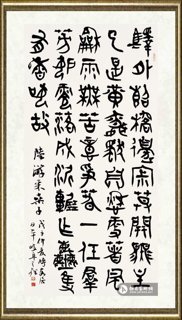 驛外斷橋邊寂寞開無主
已是黃昏獨自愁更著風
和雨無意苦爭春一任羣
芳妒零落成泥碾作塵只
有香如故
陸游
戊子